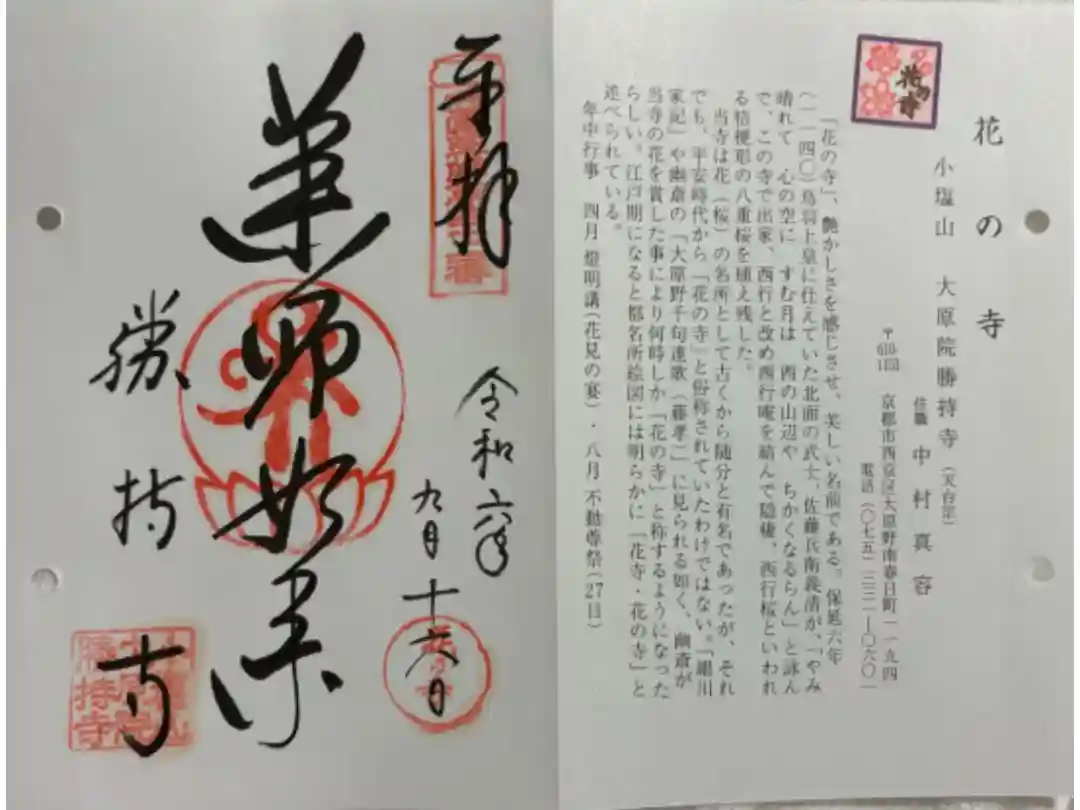 花の寺
小塩山 大原院勝持寺 (天台宗)
住職 中村真容
京都市西京区大原野南春日町一一九四
電話(〇七五)三三一―〇六〇一
花の寺
「花の寺」、艶かしさを感じさせ、美しい名前である。保延六年
(一一四〇)鳥羽上皇に仕えていた北面の武士、佐藤兵衛義清が、「やみ
晴れて 心の空に すむ月は 西の山辺や ちかくなるらん」と詠ん
で、この寺で出家、西行と改め西行庵を結んで隠棲、西行桜といわれ
る桔梗耶の八重桜を植え残した。
当寺は花(桜)の名所として古くから随分と有名であったが、それ
でも、平安時代から「花の寺」と俗称されていたわけではない。「細川
家記」や幽斎の「大原野千句連歌(藤孝)」に見られる如く、幽斎が
当寺の花を賞した事により何時しか「花の寺」と称するようになった
らしい。江戸期になると都名所絵図には明らかに「花寺・花の寺」と
述べられている。
年中行事 四月 燈明講(花見の宴)・八月 不動尊祭(27日)
奉拝
令和六年
九月
十六日
薬師如来
勝持寺
小塩山
大原院
勝持寺